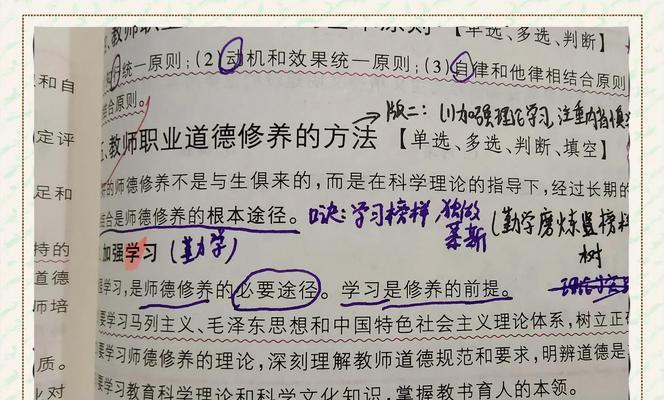 教师职业道德修养的原则:【单选、多选、判断】
统一原则;(2)动机和效果统一原则;(3)自律和他律相结合原则
结合原则。
版二:(1)加强理论学习,注重内省慎
五、教师职业道德修养的方法【单选、多选、判断、填空】
的师德修养不是与生俱来的,而是在科学理论的指导下,经过长期的
结合是师德修养的根本途径。口诀:学习榜样,独做莱斯(勤学磨炼竖榜样
树
加强学习(勤学)
学习,是师德修养的必要途径。学习是修养的前提。
要学习马列主义、毛泽东思想和中国特色社会主义理论体系,树立正
要学习师德修养的理论,深刻理解教师道德规范和要求,明辨道德是
要学习教育科学理论和科学文化知识,掌握教书育人的本领。
和自
定评
足和
持的
道德
师培
质。
对